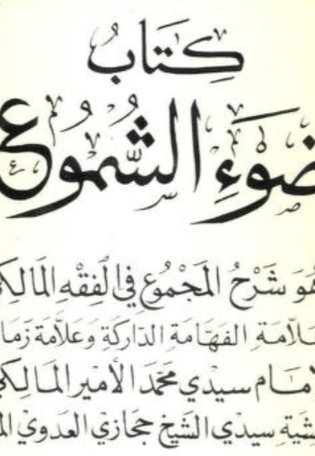 كِتَابُ
ضَوْءِ الشُّمُوعِ
هُوَ شَرْحُ المَجْمُوعِ فِي الفِقْهِ المَالِكِي
العَلَّامَةِ الفَهَّامَةِ الدَّارِكَةِ وَعَلَّامَةِ زَمَا
الإمَام سِيدِي مُحَمَّد الأَمِير المَالِكِي
حَاشِيَة سِيدِي الشَّيْخ حِجَازِي العَدَوِي